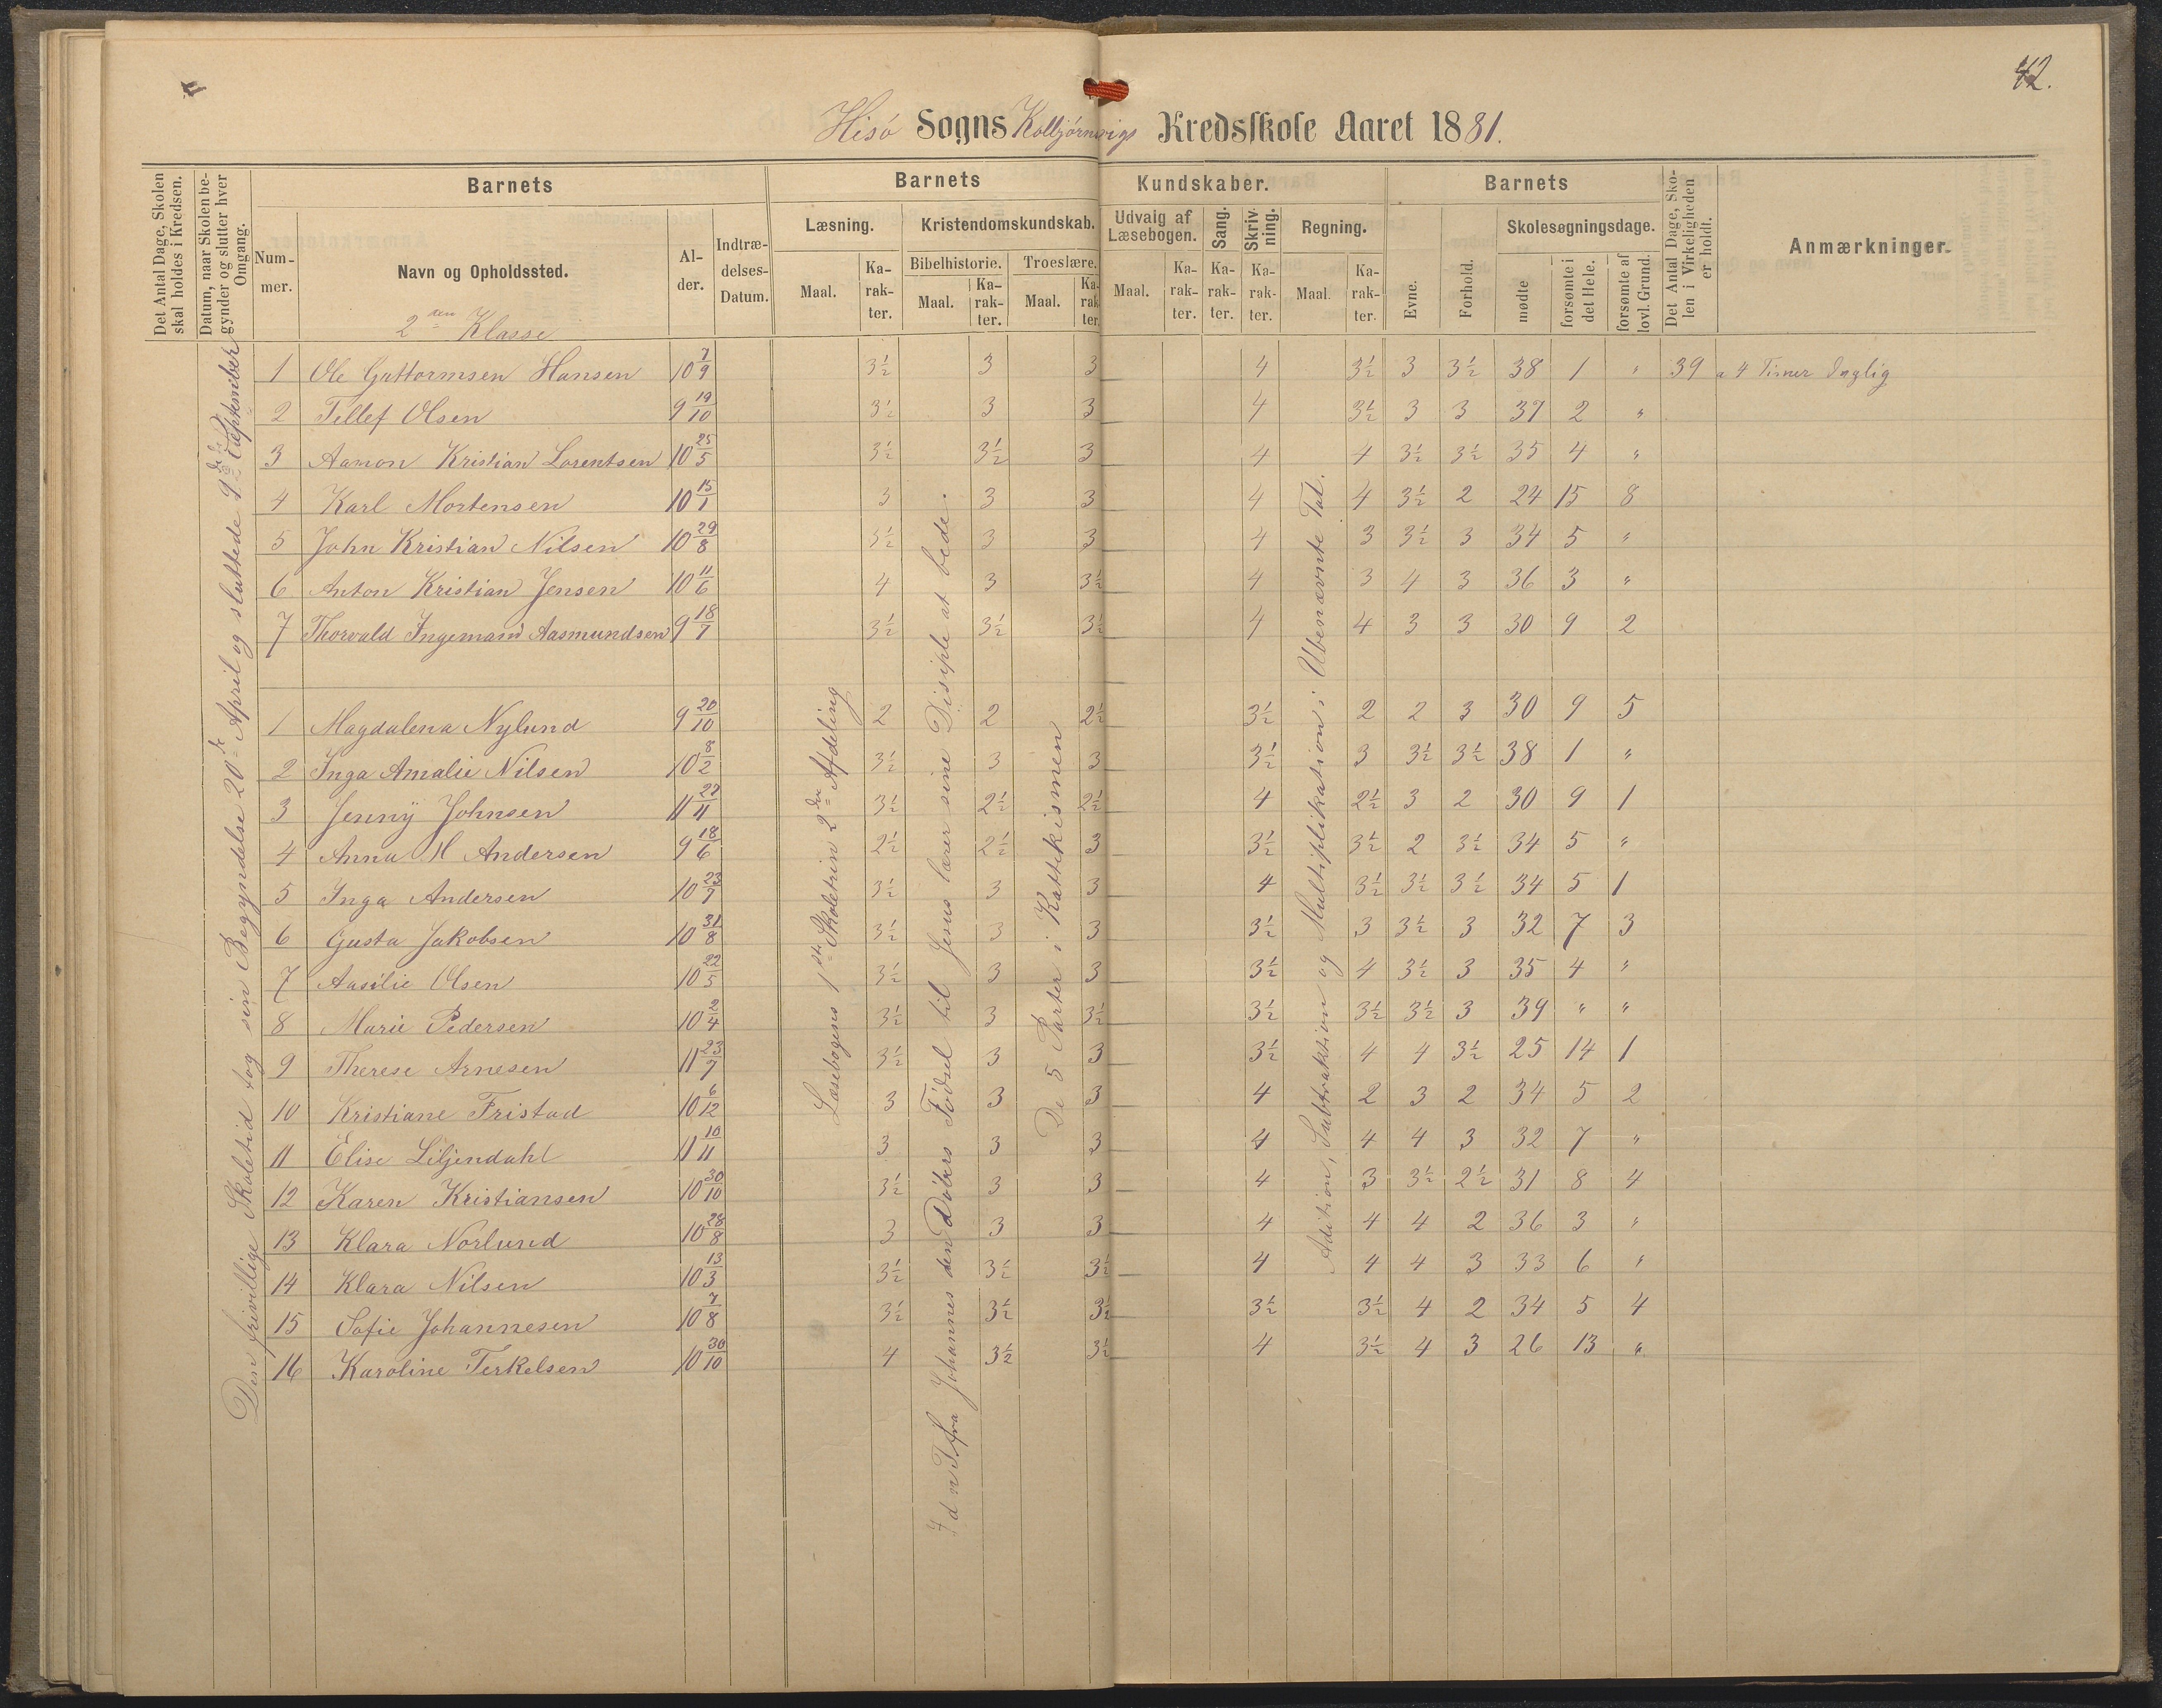 42.
Hisö Sogns Kolbjörnsvigs Kredsskole Aaret 1881.
Det Antal Dage, Skolen skal holdes i Kredsen.
Datum, naar Skolen begynder og slutter hver Omgang.
Barnets
Barnets Kundskaber.
Barnets
Det Antal Dage, Skolen i Virkeligheden er holdt.
Anmærkninger.
Nummer.
Navn og Opholdssted.
Alder.
Indtrædelses-Datum.
Læsning.
Kristendomskundskab.
Udvalg af Læsebogen.
Sang.
Skrivning.
Regning.
Evne.
Forhold.
Skolesøgningsdage.
Bibelhistorie.
Troeslære.
Maal.
Karakter.
Maal.
Karakter.
Maal.
Karakter.
Maal.
Karakter.
Karakter.
Karakter.
Maal.
Karakter.
mødte
forsømte i det Hele.
forsømte af lovl. Grund.
2den Klasse
Den frivillige Skoletid tog sin Begyndelse 20de April og sluttede 9de September
Læsebogens 1ste Skoletrin 2den Afdeling
fra Johannes den Döbers Födsel til Jesus lærer sine Disiple at bede.
De 5 Parter i Kattekismen
Adition, Subtraktion og Multiplikation i Ubenævnte Tal.
1 Ole Guttormsen Hansen 10 7/9 3½ 3 3 4 3½ 3 3½ 38 1 " 39 a 4 Timer Daglig
2 Tellef Olsen 9 19/10 3½ 3 3 4 3½ 3 3 37 2 "
3 Aamon Kristian Lorentsen 10 25/5 3½ 3½ 3 4 4 3½ 3½ 35 4 "
4 Karl Mortensen 10 15/1 3 3 3 4 4 3½ 2 24 15 8
5 John Kristian Nilsen 10 29/8 3½ 3 3 4 3 3½ 3 34 5 "
6 Anton Kristian Jensen 10 11/6 4 3 3½ 4 3 4 3 36 3 "
7 Thorvald Ingemann Aasmundsen 9 18/7 3½ 3½ 3½ 4 4 3 3 30 9 2
1 Magdalena Nylund 9 20/10 2 2 2½ 3½ 2 2 3 30 9 5
2 Inga Amalie Nilsen 10 8/2 3½ 3 3 3½ 3 3½ 3½ 38 1 "
3 Jenny Johnsen 11 22/11 3½ 2½ 2½ 4 2½ 3 2 30 9 1
4 Anna M Andersen 9 18/6 2½ 2½ 3 3½ 3½ 2 3½ 34 5 "
5 Inga Andersen 10 23/7 3½ 3 3 4 3½ 3½ 3½ 34 5 1
6 Gusta Jakobsen 10 31/8 3½ 3 3 3½ 3 3½ 3 32 7 3
7 Aasilie Olsen 10 22/5 3½ 3 3 3½ 4 3½ 3 35 4 "
8 Marie Pedersen 10 2/4 3½ 3 3½ 3½ 3½ 3½ 3 39 " "
9 Therese Arnesen 11 23/7 3½ 3 3 3½ 4 4 3½ 25 14 1
10 Kristiane Fristad 10 6/12 3 3 3 4 2 3 2 34 5 2
11 Elise Liljendahl 11 10/11 3 3 3 4 4 4 3 32 7 "
12 Karen Kristiansen 10 30/10 3½ 3 3 4 3 3½ 2½ 31 8 4
13 Klara Norlund 10 28/8 3 3 3 4 4 4 2 36 3 "
14 Klara Nilsen 10 13/3 3½ 3½ 3½ 4 4 4 3 33 6 "
15 Sofie Johannesen 10 7/8 3½ 3½ 3½ 3½ 3½ 4 2 34 5 4
16 Karoline Terkelsen 10 30/10 4 3½ 3½ 4 3½ 4 3 26 13 "